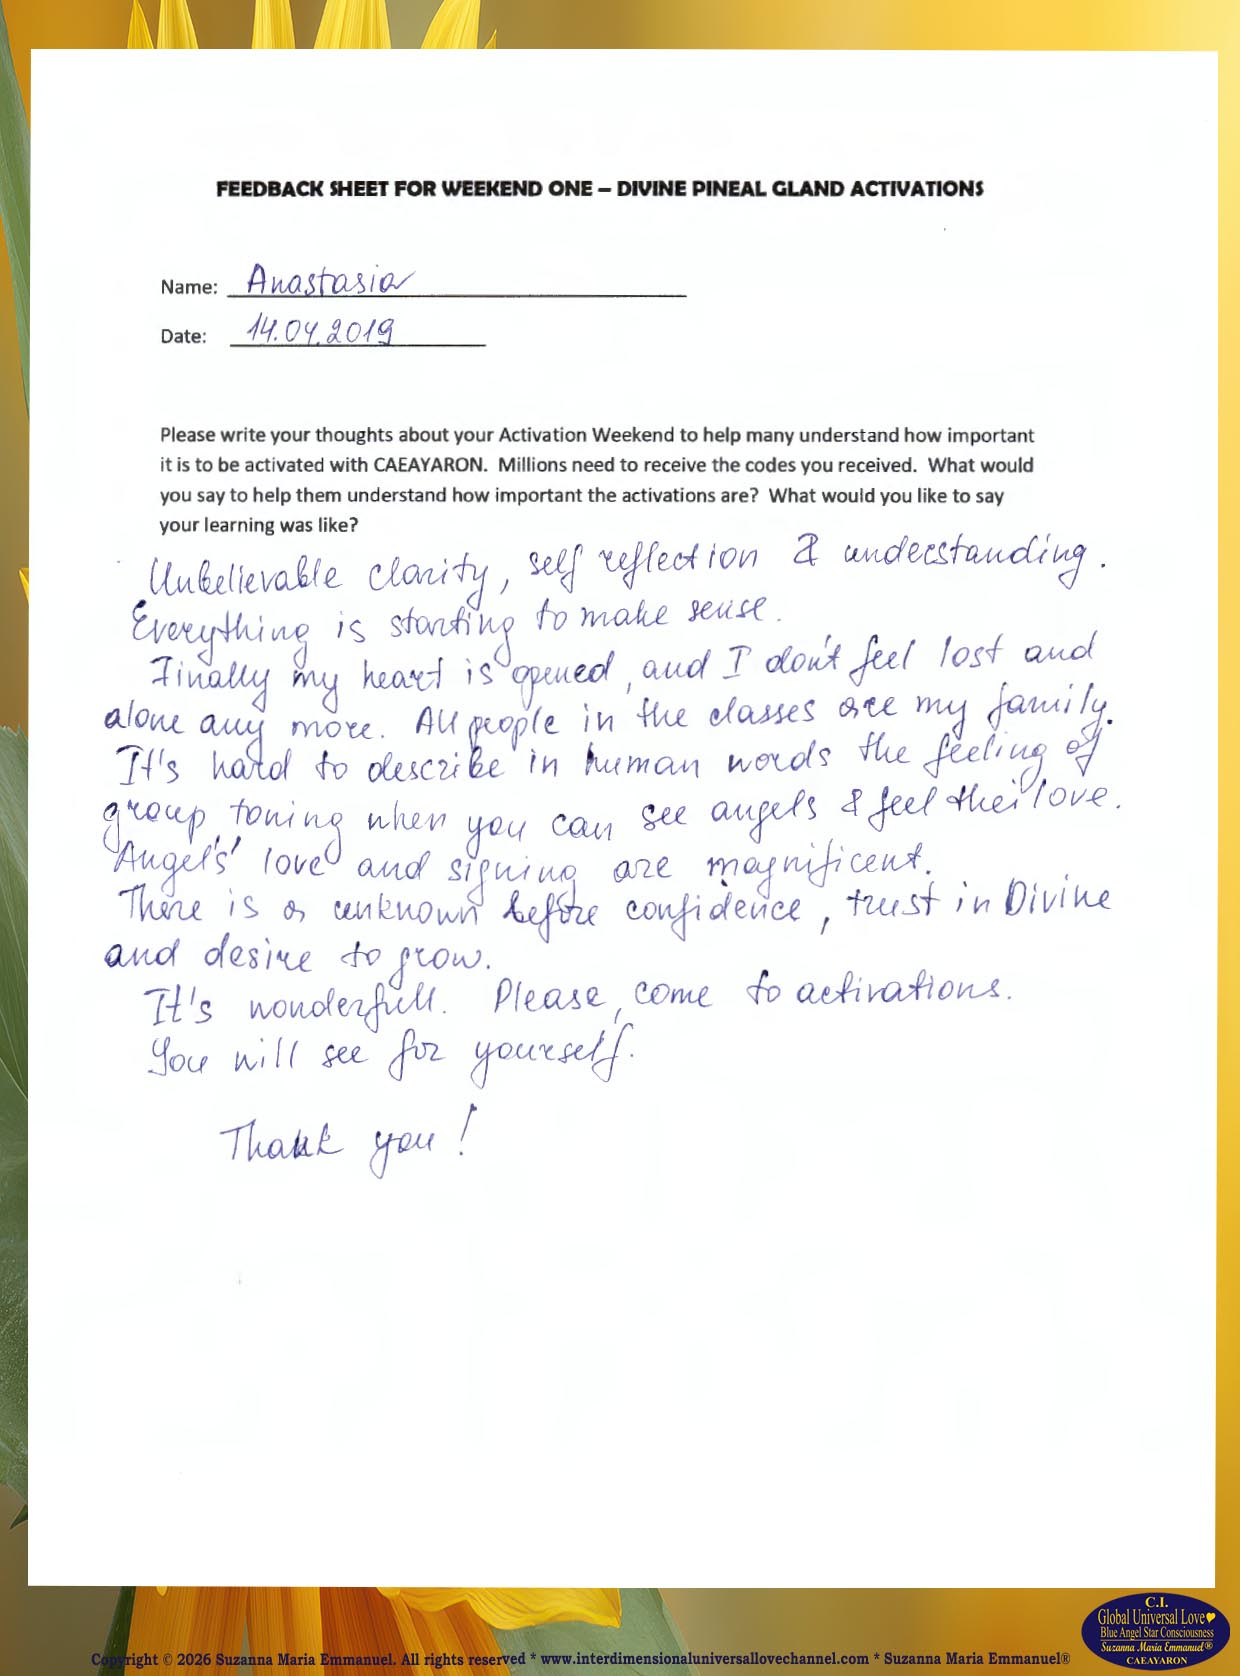 FEEDBACK SHEET FOR WEEKEND ONE – DIVINE PINEAL GLAND ACTIVATIONS
Name: Anastasia
Date: 14.04.2019
Please write your thoughts about your Activation Weekend to help many understand how important
it is to be activated with CAEAYARON. Millions need to receive the codes you received. What would
you say to help them understand how important the activations are? What would you like to say
your learning was like?
Unbelievable clarity, self reflection & understanding.
Everything is starting to make sense.
Finally my heart is opened, and I don't feel lost and
alone any more. All people in the classes are my family.
It's hard to describe in human words the feeling of
group toning when you can see angels & feel their love.
Angel's' love and signing are magnificent.
There is a unknown before confidence, trust in Divine
and desire to grow.
It's wonderfull. Please, come to activations.
You will see for yourself.
Thank you!
C.I.
Global Universal Love
Blue Angel Star Consciousness
Suzanna Maria Emmanuel®
CAEAYARON
Copyright © 2026 Suzanna Maria Emmanuel. All rights reserved * www.interdimensionaluniversallovechannel.com * Suzanna Maria Emmanuel®